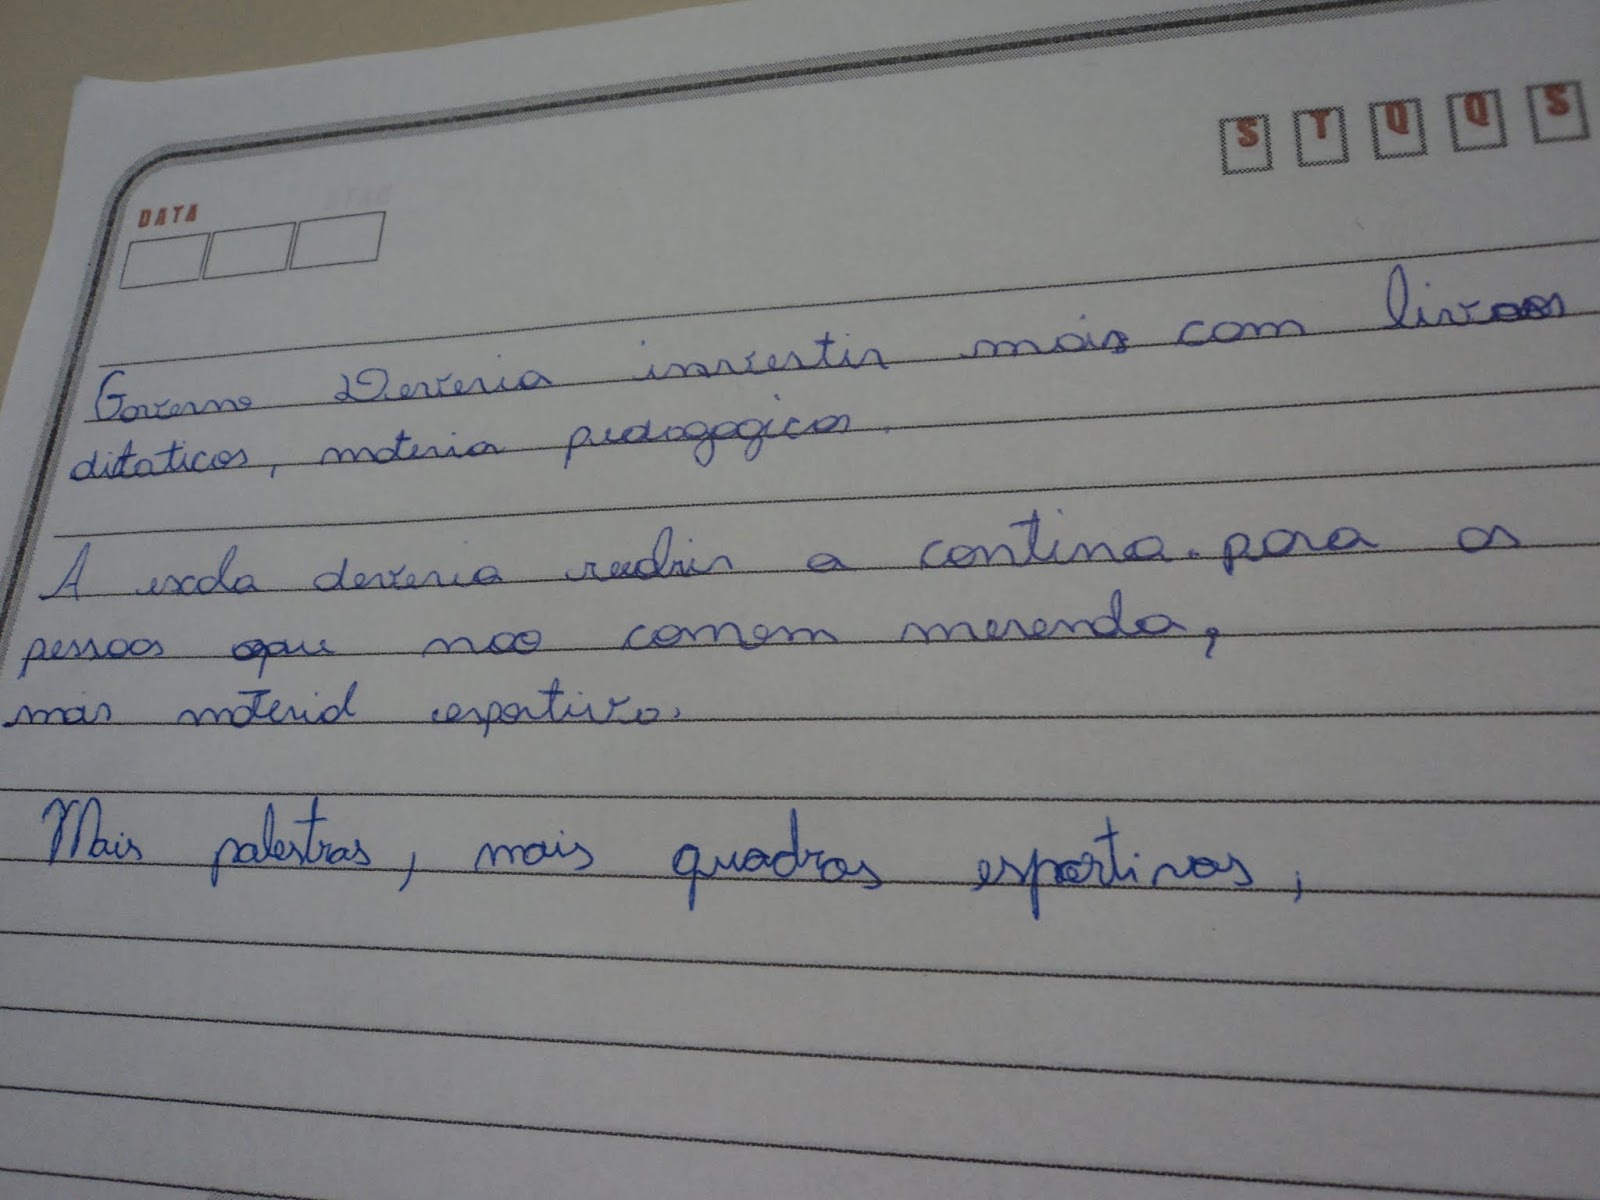 S T Q Q S
DATA
Governo Deveria investir mais com livros
ditaticos, materia pedagogicos.
A escola deveria reabrir a cantina. para as
pessoas que nao comem merenda,
mais material esportivo.
Mais palestras, mais quadras esportivas,